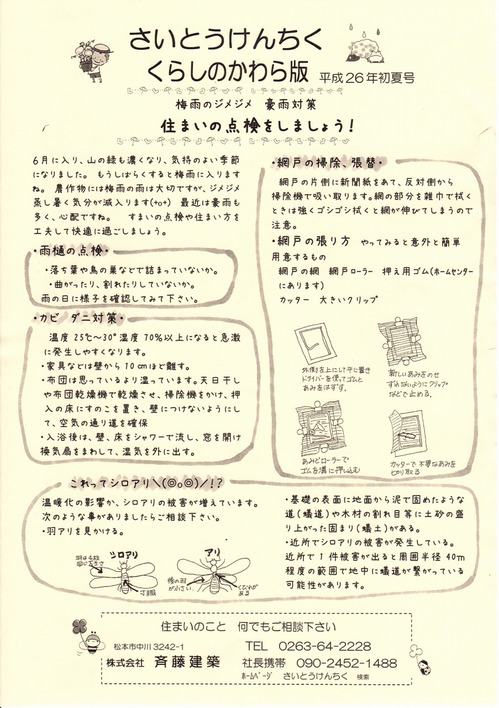 さいとうけんちく
くらしのかわら版 平成26年初夏号
梅雨のジメジメ 豪雨対策
住まいの点検をしましょう!
6月に入り、山の緑も濃くなり、気持のよい季節
になりました。もうしばらくすると梅雨に入ります
ね。 農作物には梅雨の雨は大切ですが、ジメジメ
蒸し暑く気分が滅入ります(+o+) 最近は豪雨も
多く、心配ですね。 すまいの点検や住い方を
工夫して快適に過ごしましょう。
・雨樋の点検・
・落ち葉や鳥の巣などで詰まっていないか。
・曲がったり、割れたりしていないか。
雨の日に様子を確認してみて下さい。
・カビ ダニ対策・
温度25℃~30°湿度70%以上になると急激
に発生しやすくなります。
・家具などは壁から10cmほど離す。
・布団は思っているより湿っています。天日干し
や布団乾燥機で乾燥させ、掃除機をかけ、押
入の床にすのこを置き、壁につけないようにし
て、空気の通り道を確保
・入浴後は、壁、床をシャワーで流し、窓を開け
換気扇をまわして、湿気を外に出す。
・網戸の掃除、張替・
網戸の片側に新聞紙をあて、反対側から
掃除機で吸い取ります。網の部分を雑巾で拭く
ときは強くゴシゴシ拭くと網が伸びてしまうので
注意。
・網戸の張り方 やってみると意外と簡単
用意するもの
網戸の網 網戸ローラー 押え用ゴム(ホームセンター
にあります)
カッター 大きいクリップ
外側を上にして平に置き
ドライバーを使ってゴムと
あみをはずす。
新しいあみをのせ
ずれないようにクリップ
などで止める。
あみどローラーで
ゴムを溝に押し込む
カッターで不要なあみを
切り取る
これってシロアリ\(◎o◎)/!?
温暖化の影響か、シロアリの被害が増えています。
次のような事がありましたらご相談下さい。
・羽アリを見かける。
シロアリ
羽は4枚
同じ大きさ
寸胴
アリ
後の羽
が小さい
くびれが
ある
・基礎の表面に地面から泥で固めたような
道(蟻道)や木材の割れ目等に土砂の盛
り上がった固まり(蟻土)がある。
・近所でシロアリの被害が発生している。
近所で1件被害が出ると周囲半径40m
程度の範囲で地中に蟻道が繋がっている
可能性があります。
住まいのこと 何でもご相談下さい
松本市中川3242-1 TEL 0263-64-2228
株式会社 斉藤建築 社長携帯 090-2452-1488
ホームページ さいとうけんちく 検索